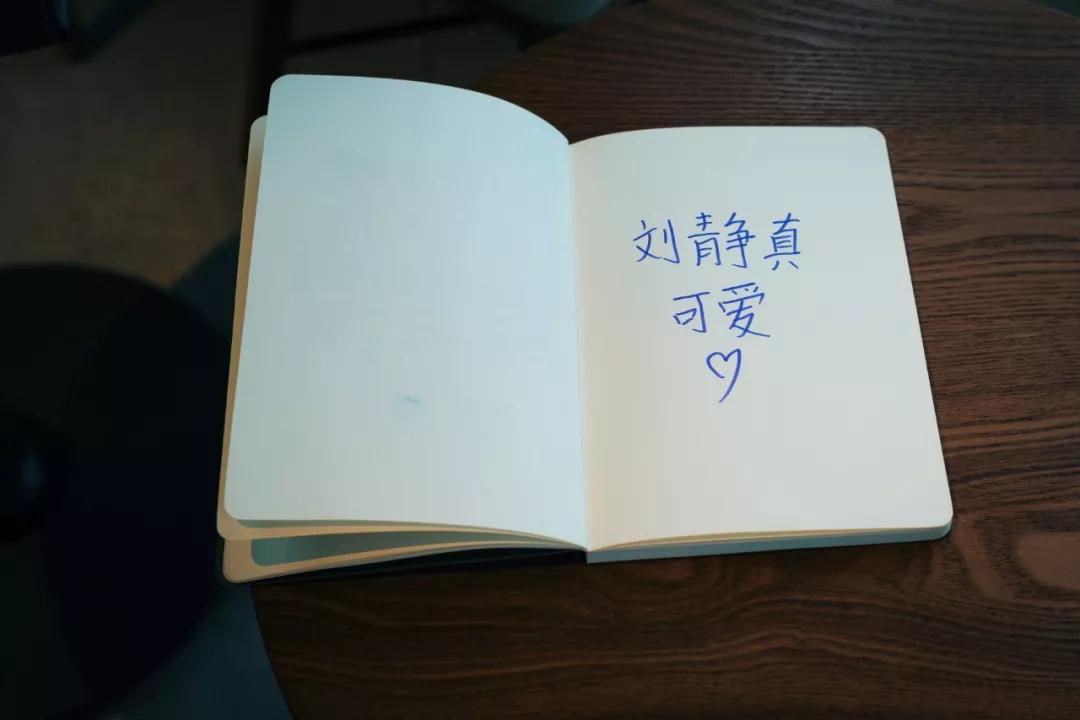 刘静真
可爱
♡